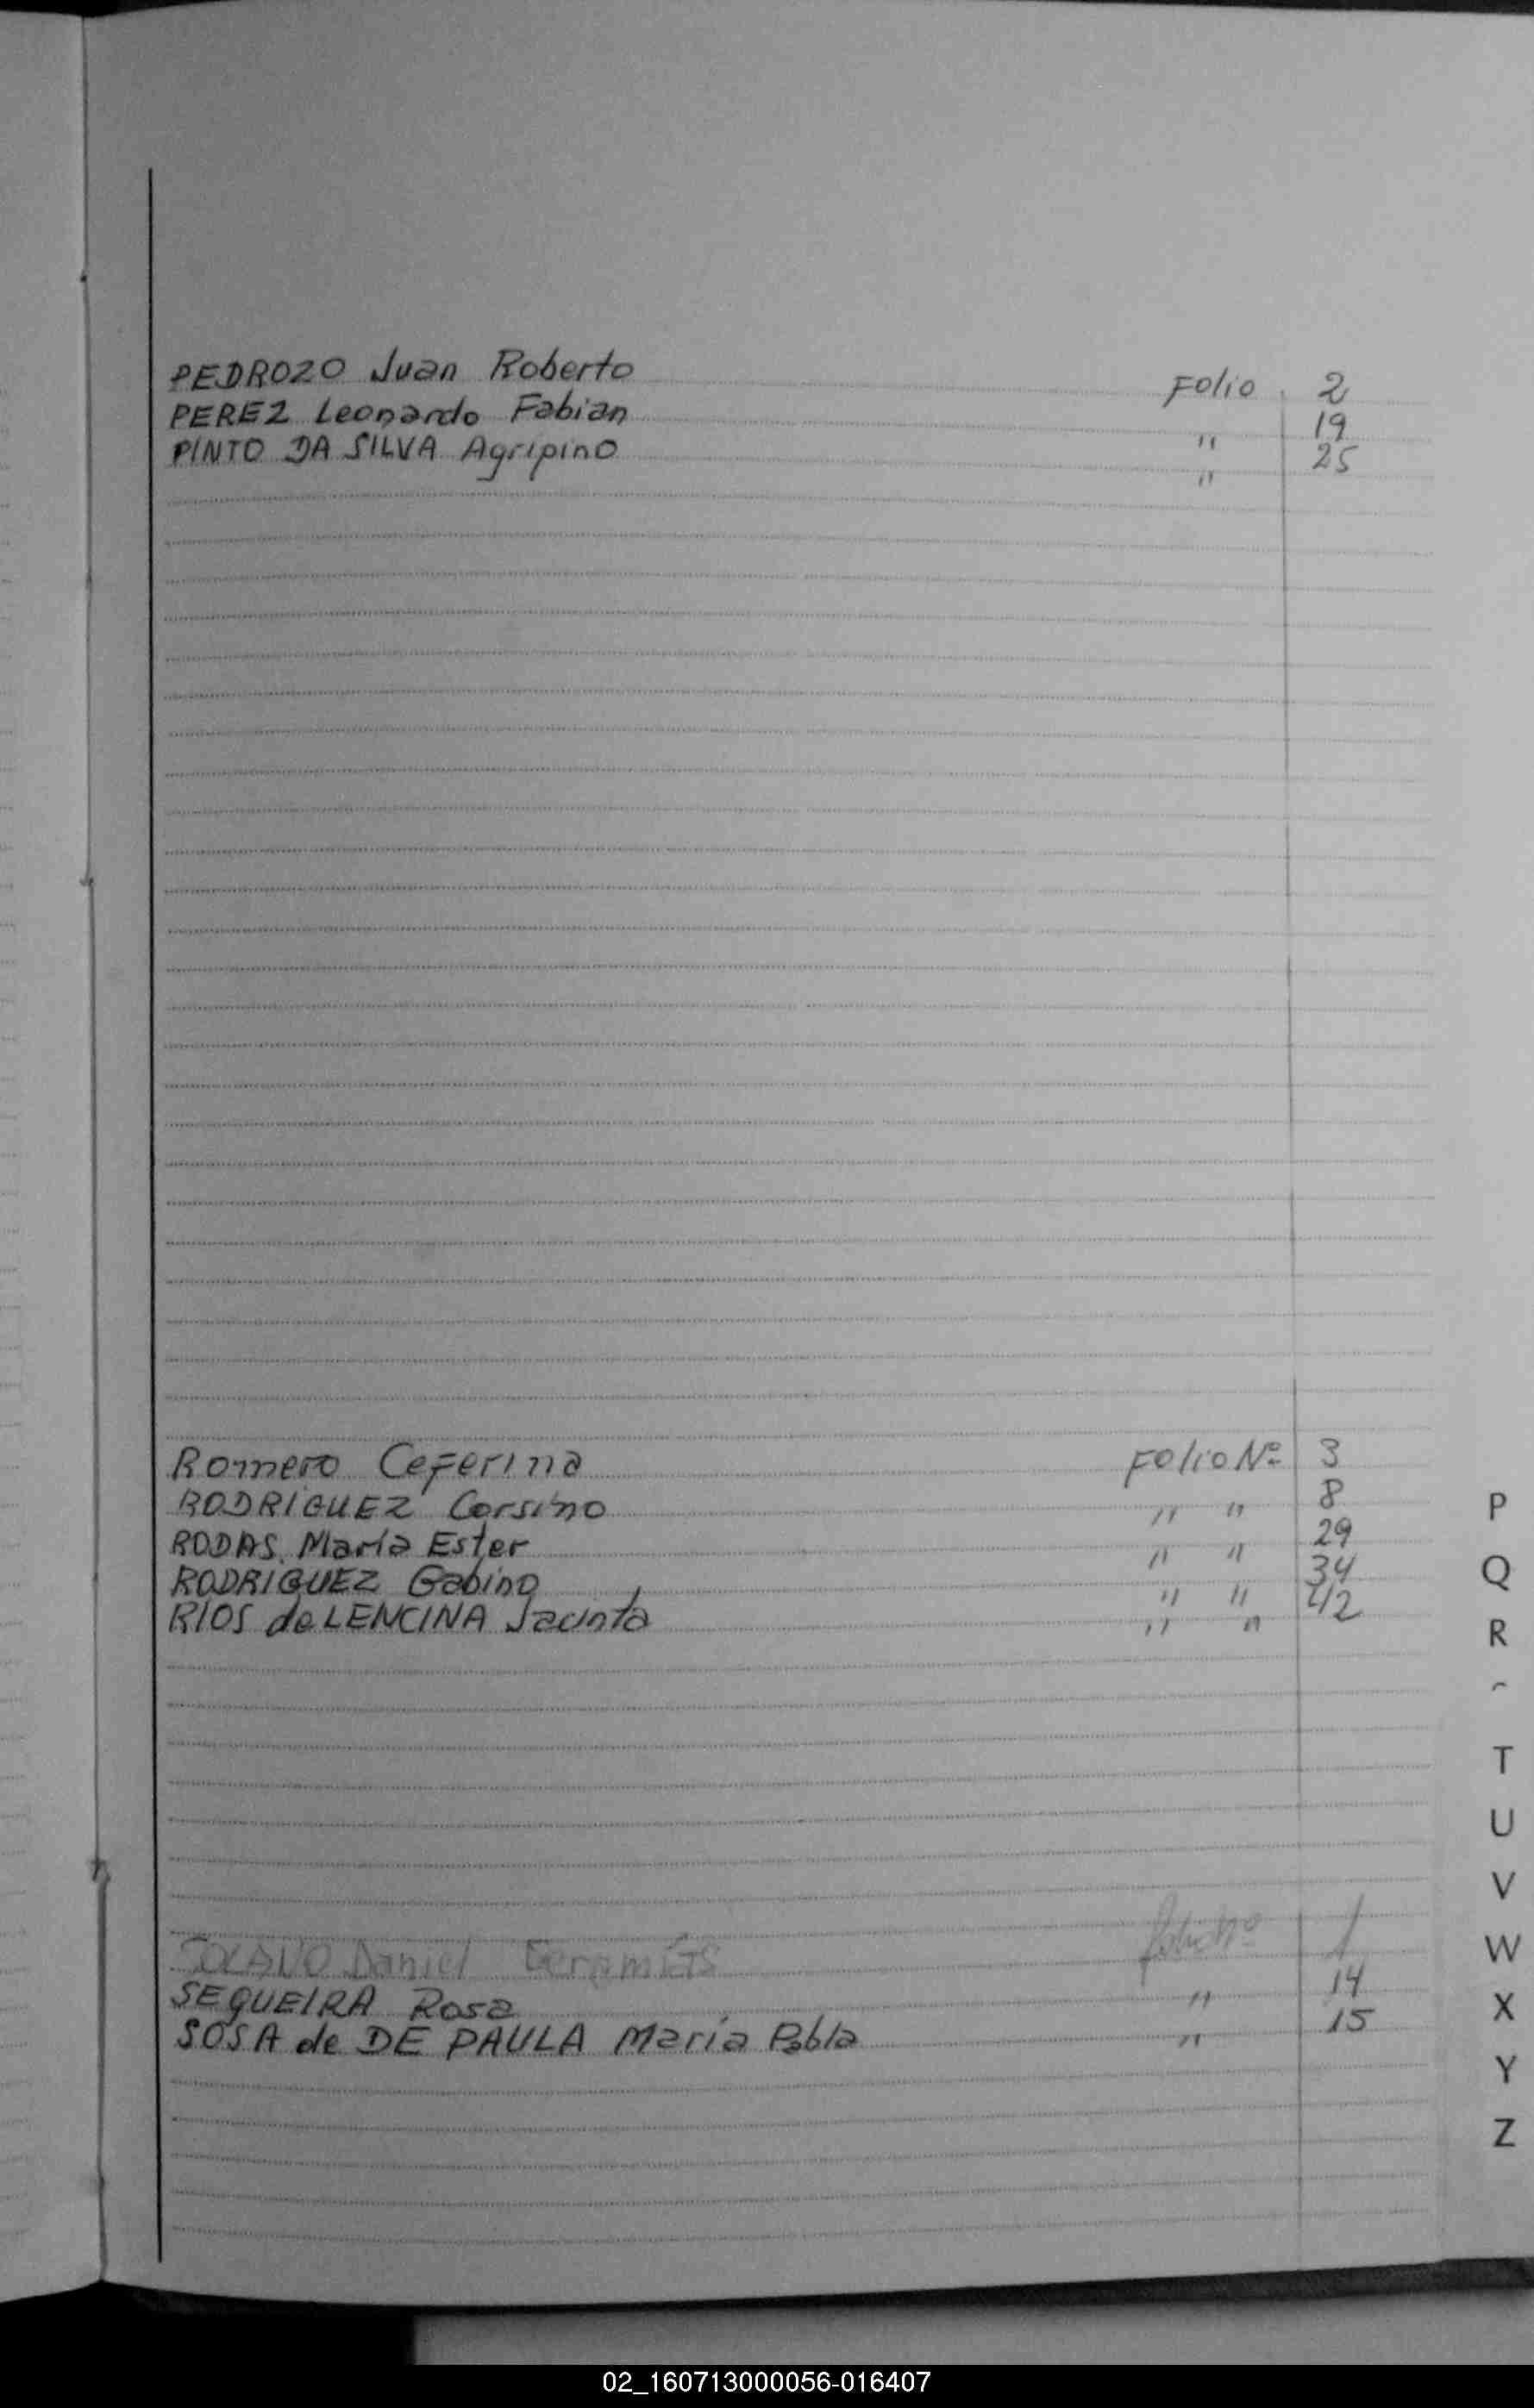 PEDROZO Juan Roberto Folio 2
PEREZ Leonardo Fabian " 19
PINTO DA SILVA Agripino " 25
Romero Ceferina Folio Nº 3
RODRIGUEZ Corsino " " 8
RODAS María Ester " " 29
RODRIGUEZ Gabino " " 34
RIOS de LENCINA Jacinta " " 42
Daniel folio Nº 1
SEQUEIRA Rosa " 14
SOSA de DE PAULA María Pabla " 15
P
Q
R
T
U
V
W
X
Y
Z
02_160713000056-016407